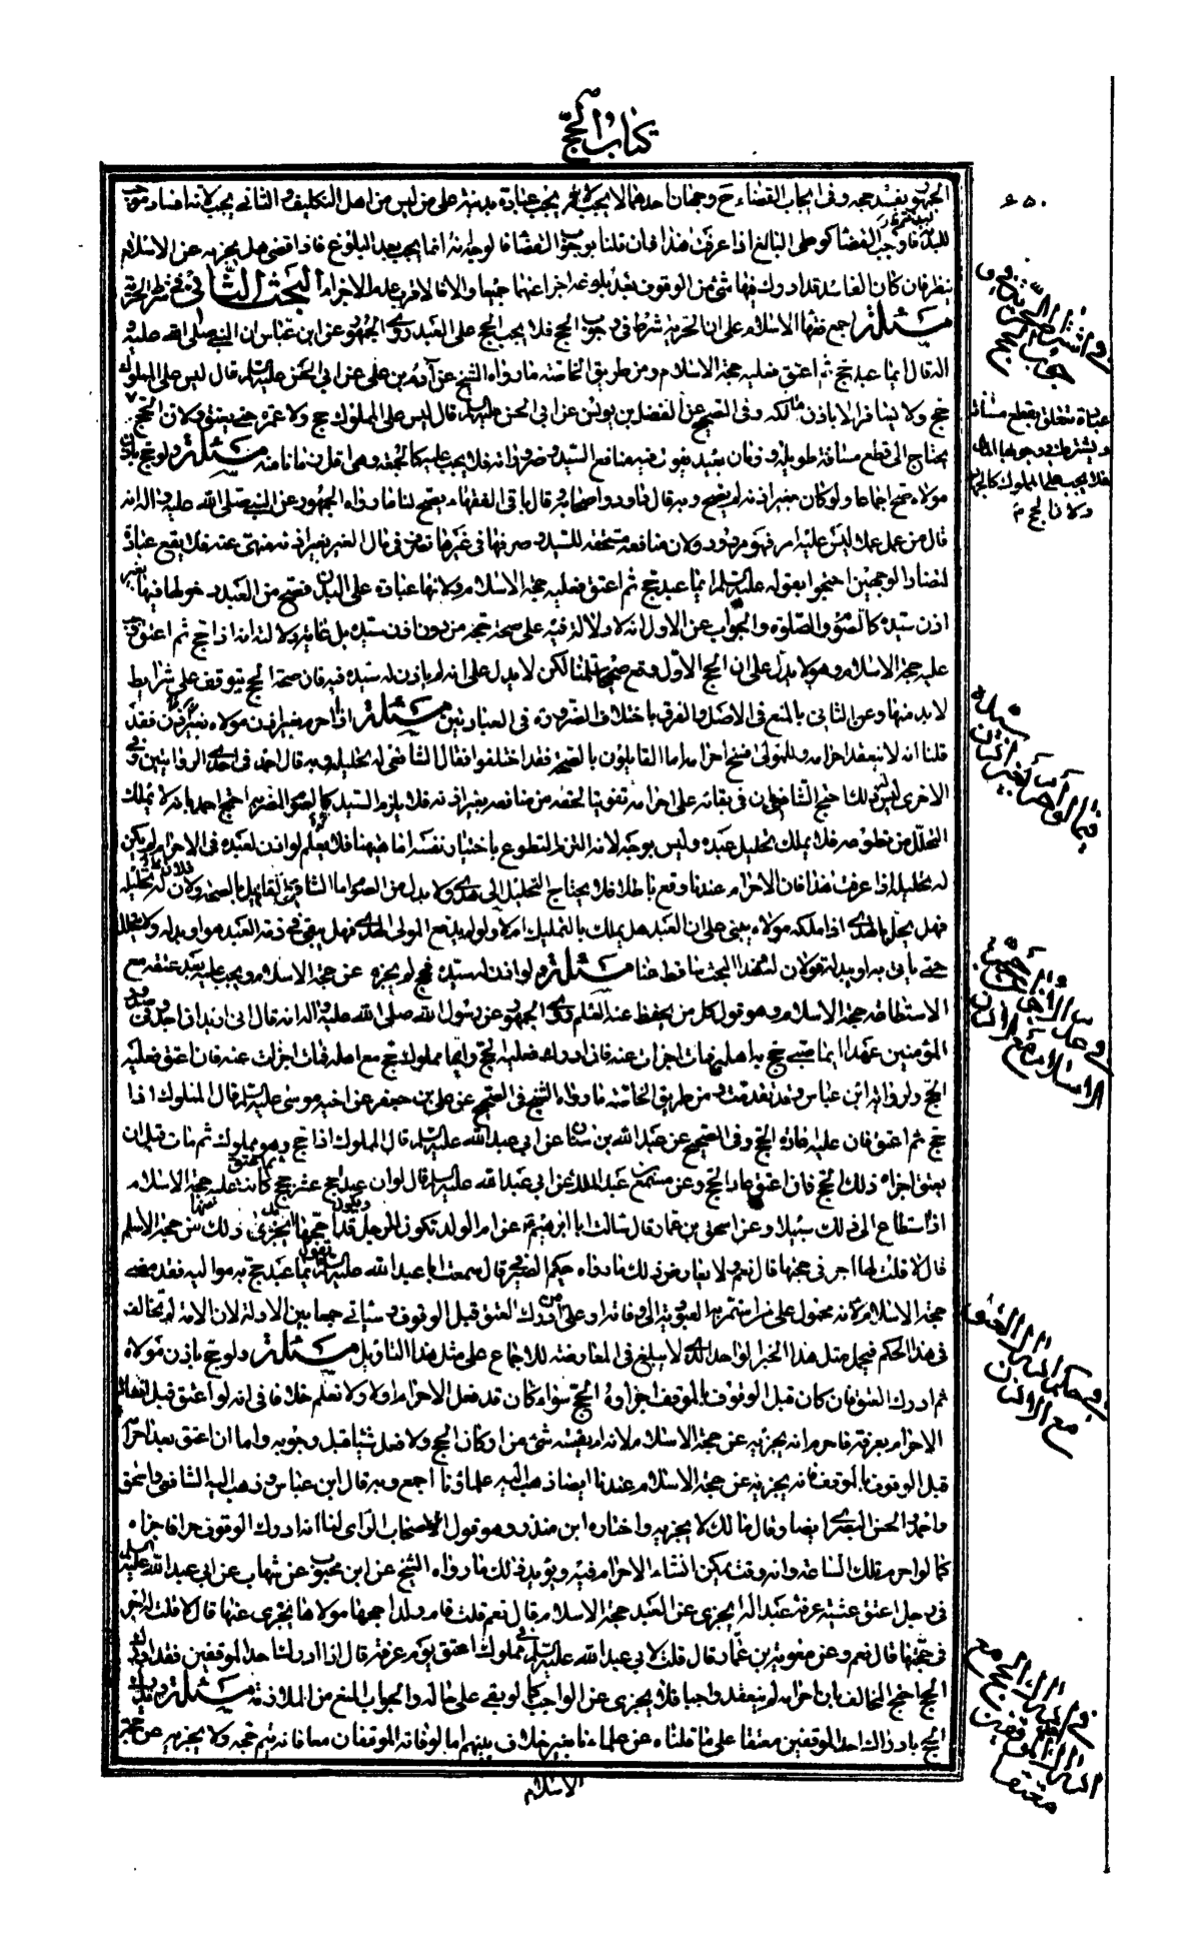 كتاب الحج
٦٥٠
الجمهور يفسد حجه وفى ايجاب القضاء ح وجهان احدهما لا يجب لئلا يجب عبادة بدنية على من ليس من اهل التكليف والثانى يجب لانه افساد موجب
للبدنة فاوجب القضاء كوطى البالغ اذا عرفت هذا فان قلنا بوجوب القضاء فالوجه انه انما يجب بعد البلوغ فاذا قضى هل يجزيه عن حجة الاسلام
ينظر فان كان الفاسد قد ادرك فيها شئ من الوقوف بعد بلوغه اجزا عنهما جميعا والا فلا البحث الثانى فى شرط الحرية
مسئلة اجمع فقهاء الاسلام على ان الحرية شرط فى وجوب الحج فلا يجب الحج على العبد روى الجمهور عن ابن عباس ان النبى صلى الله عليه و
اله قال ايما عبد حج ثم اعتق فعليه حجة الاسلام ومن طريق الخاصة ما رواه الشيخ عن آدم بن على عن ابى الحسن عليه السلم قال ليس على المملوك
حج ولا يسافر الا باذن مالكه وفى الصحيح عن الفضل بن يونس عن ابى الحسن عليه السلم قال ليس على المملوك حج ولا عمرة حتى يعتق ولان الحج
يحتاج الى قطع مسافة طويلة وزمان بعيد يفوت فيه منافع السيد وضرر به فلا يجب عليه كالجمعة وهى اقل زمانا منه مسئلة ولو حج باذن
مولاه صح اجماعا ولو كان بغير اذنه لم يصح وبه قال داود واصحابه وقال باقى الفقهاء يصح لنا ما رواه الجمهور عن النبى صلى الله عليه واله انه
قال من عمل عملا ليس عليه امرنا فهو مردود ولان منافعه مستحقة للسيد وصرفها فى غيرها تصرف فى مال الغير بغير اذنه منهى عنه فلا يقع عبادة
لتضاد الوجهين احتجوا بقوله عليه السلم ايما عبد حج ثم اعتق فعليه حجة الاسلام ولانها عبادة على البدن فتصح من العبد دخوله فيها بغير
اذن سيده كالصوم والصلوة والجواب عن الاول انه لا دلالة فيه على صحة حجه من دون اذن سيده بل غايته دلالته انه اذا حج ثم اعتق وجب
عليه حجة الاسلام وهو لا يدل على ان الحج الاول وقع صحيحا سلمنا لكن لا يدل على انه لم ياذن له سيده فيه فان صحة الحج يتوقف على شرايط
لا بد منها وعن الثانى بالمنع فى الاصل والفرق باختلاف الضرورة فى العبادتين مسئلة اذا احرم بغير اذن مولاه فقد
قلنا انه لا ينعقد احرامه وللمولى فسخ احرامه اما القايلون بالصحة فقد اختلفوا فقال الشافعى له تحليله وبه قال احمد فى احدى الروايتين وفى
الاخرى ليس له ذلك احتج الشافعى بان فى بقائه على احرامه تفويتا لحقه من منافعه بغير اذنه فلا يلزم السيد كالصوم المضر به احتج احمد بانه لا يملك
التحلل من تطوعه فلا يملك تحليل عبده وليس بوجه لانه التزم التطوع باختيار نفسه اما هيهنا فلا نعلم لو اذن لعبده فى الاحرام لم يكن
له تحليله اذا عرفت هذا فان الاحرام عندنا وقع باطلا فلا يحتاج التحليل الى هدى ولا بدل من الصوم اما الشافعى القايل بالصحة
فهل يحلل بالهدى اذا ملكه مولاه يبنى على ان العبد هل يملك بالتمليك ام لا ولو لم يدفع المولى الهدى فهل يبقى فى ذمة العبد هو او بدله ولا يتحلل
حتى ياتى به او ببدله قولان لهم هذا البحث ساقط عنا مسئلة ولو اذن له سيده فحج لم يجزه عن حجة الاسلام ويجب عليه بعد عتقه مع
الاستطاعة حجة الاسلام وهو قول كل من يحفظ عنه العلم روى الجمهور عن رسول الله صلى الله عليه واله انه قال انى اريد ان اجدد فى
المؤمنين عهدا ايما صبى حج به اهله فمات اجزات عنه فان ادرك فعليه الحج وايما مملوك حج مع اهله فمات اجزات عنه فان اعتق فعليه
الحج ولرواية ابن عباس وقد تقدمت ومن طريق الخاصة ما رواه الشيخ فى الصحيح عن على بن جعفر عن اخيه موسى عليه السلم قال المملوك اذا
حج ثم اعتق فان عليه اعادة الحج وفى الصحيح عن عبد الله بن سنان عن ابى عبد الله عليه السلم قال المملوك اذا حج وهو مملوك ثم مات قبل ان
يعتق اجزاه ذلك الحج فان اعتق اعاد الحج وعن مسمع بن عبد الملك عن ابى عبد الله عليه السلم قال لو ان عبدا حج عشر حجج كانت عليه حجة الاسلام
اذا استطاع الى ذلك سبيلا وعن اسحق بن عمار قال سالت ابا ابرهيم ع عن ام الولد تكون للرجل قد احجها ايجزى ذلك عن حجة الاسلام
قال لا قلت لها اجر فى حجتها قال نعم ولا يعارض ذلك ما رواه حكم الصيرفى قال سمعت ابا عبد الله عليه السلم يقول ايما عبد حج به مواليه فقد قضى
حجة الاسلام لانه محمول على من استمر به العبودية الى وفاته او على من ادرك العتق قبل الوقوف وسياتى جمعا بين الادلة لان الامة لم تخالف
فى هذا الحكم فيحمل مثل هذا الخبر الواحد الذى لا يبلغ فى المعارضة للاجماع على مثل هذا التاويل مسئلة ولو حج باذن مولاه
ثم ادرك العتق فان كان قبل الوقوف بالموقف اجزاه الحج سواء كان قد فعل الاحرام او لا ولا نعلم خلافا فى انه لو اعتق قبل
الاحرام بعرفة فاحرم انه يجزيه عن حجة الاسلام لانه لم يفته شئ من اركان الحج ولا فعل شيئا قبل وجوبه واما ان اعتق بعد احرامه
قبل الوقوف بالموقف فانه يجزيه عن حجة الاسلام عندنا ايضا ذهب اليه علماؤنا اجمع وبه قال ابن عباس وذهب اليه الشافعى واسحق
واحمد والحسن البصرى ايضا وقال مالك لا يجزيه واختاره ابن منذر وهو قول اصحاب الراى لنا انه ادرك الوقوف حرا فاجزاه
كما لو احرم تلك الساعة وانه وقت يمكن انشاء الاحرام فيه ويؤيد ذلك ما رواه الشيخ عن ابن محبوب عن شهاب عن ابى عبد الله عليه السلم
فى رجل اعتق عشية عرفة عبدا له ايجزى عن العبد حجة الاسلام قال نعم قلت فام ولد احجها مولاها ايجزى عنها قال لا قلت له اجر
فى حجتها قال نعم وعن معوية بن عمار قال قلت لابى عبد الله عليه السلم مملوك اعتق يوم عرفة قال اذا ادرك احد الموقفين فقد ادرك
الحج احتج المخالف بان احرامه لم ينعقد واجبا فلا يجزى عن الواجب كما لو بقى على حاله والجواب المنع من الملازمة مسئلة ويدرك
الحج بادراك احد الموقفين معتقا على ما قلناه عن علمائنا بغير خلاف بينهم اما لو فاته الموقفان معا فانه يتم حجه ولا يجزيه عن حجة
الاسلام
عبادة متعلق بقطع مسافة
ويشترط فى وجوبها المال
فلا يجب على المملوك كالجهاد
ولان الحج م
فى حكم ادراك العتق
مع الاذن